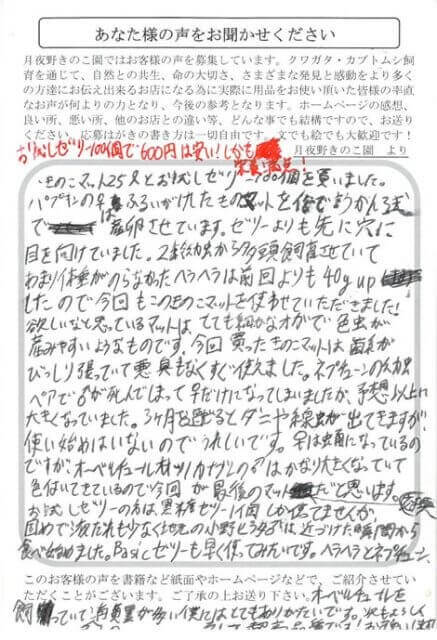 あなた様の声をお聞かせください
月夜野きのこ園ではお客様の声を募集しています。クワガタ・カブトムシ飼
育を通じて、自然との共生、命の大切さ、さまざまな発見と感動をより多く
の方達にお伝え出来るお店になる為に実際に用品をお使い頂いた皆様の率直
なお声が何よりの力となり、今後の参考となります。ホームページの感想、
良い所、悪い所、他のお店との違い等、どんな事でも結構ですので、お送り
ください。応募はがきの書き方は一切自由です。文でも絵でも大歓迎です!
お試しゼリー100個で600円は安い!しかも
月夜野きのこ園 より
・きのこマット25ℓとお試しゼリー100個を買いました。
ふるいがけしたものマットを
産卵させています。ゼリーよりも先に穴に
目を向けていました。2幼虫から多頭飼育させていて
あまり体重がのらなかったヘラヘラは前回よりも40gup
したので今回もこのきのこマットを使わせていただきました!
欲しいなと思っているマットは、とても細かなオガで色虫が
産みやすいようなものです。今回買ったきのこマットは菌糸が
びっしり張っていて悪臭もなくすぐ使えました。ネプチューンの幼虫
ペアで♂が死んでしまって♀だけになってしまいましたが、予想以上に
大きくなっていました。3ヶ月も経るとダニや線虫が出てきますが
使い始めはいないのでうれしいです。♀は蛹になっているの
ですが、オーベルチュールオオツノカナブンの♂はかなり大きくなっていて
色付いてきているので今回が最後のマットだと思います。
お試しゼリーの方は、黒糖ゼリー1個しか使てませんが
固めで液だれも少なく地元の小野ヒラタ♂は近づけた瞬間から
食べ始めました。Basicゼリーも早く使ってみたいです。ヘラヘラとネプチューン、
このお客様の声を書籍など紙面やホームページなどで、ご紹介させてい
ただくことがございます。ご了承の上お送り下さい。オーベルチュールを
飼っていて消費量が多い僕にはとてもありがたいです。次もよろしく